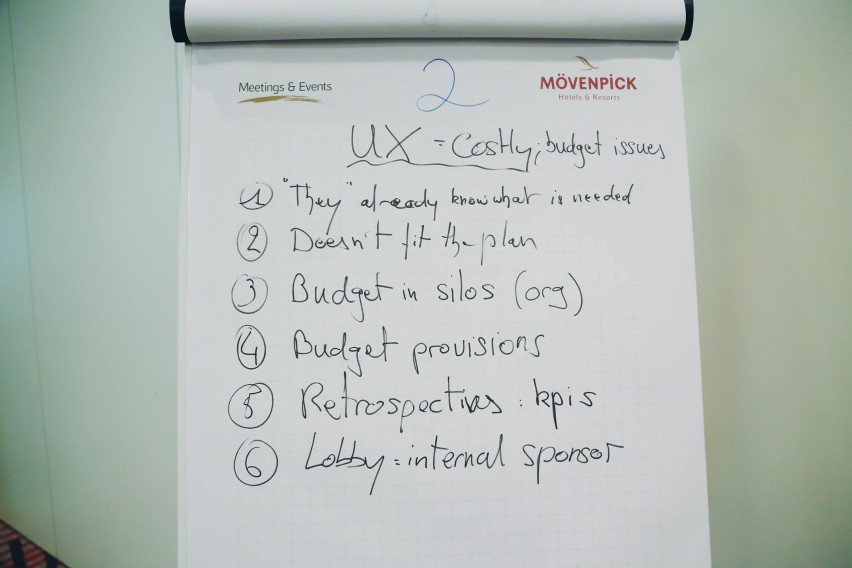 2
Meetings & Events
MÖVENPICK
Hotels & Resorts
UX = Costly; budget issues
1 "They" already know what is needed
2 Doesn't fit the plan
3 Budget in silos (org)
4 Budget provisions
5 Retrospectives: kpis
6 Lobby = internal sponsor